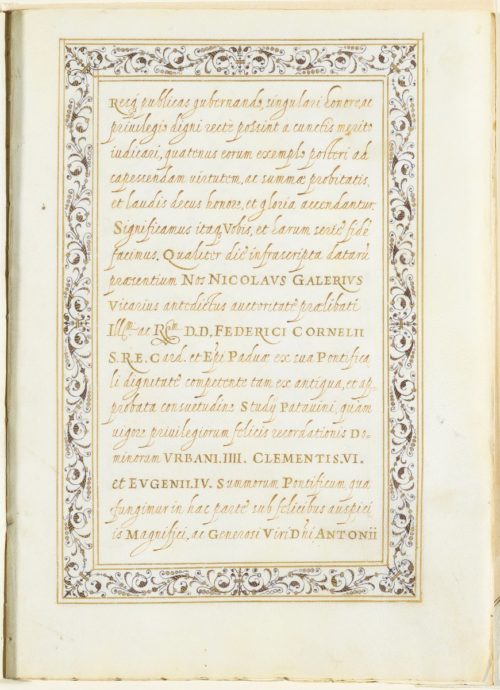 Resq publicas gubernando, singulari honore, ac
privilegio digni recte possint a cunctis merito
iudicari, quatenus eorum exemplo posteri ad
capessendam virtutem, ac summæ probitatis,
et laudis decus honore, et gloria accendantur.
Significamus itaq Vobis, et harum serie fidē
facimus, Qualiter die infrascripta datarū
præsentium Nos NICOLAVS GALERIVS
Vicarius antedictus auctoritate prælibati
Illᵐⁱ ac Rᵐⁱ D.D. FEDERICI CORNELII
S.R.E. Card. et Epi Paduæ ex sua Pontifica
li dignitate competente tam ex antiqua, et ap
probata consuetudine Studÿ Patavini, quam
vigore privilegiorum felicis recordationis Do-
minorum VRBANI.IIII. CLEMENTIS.VI.
et EVGENII.IV. Summorum Pontificum qua
fungimur in hac parte sub felicibus auspici
is Magnifici, ac Generosi Viri Dñi ANTONII